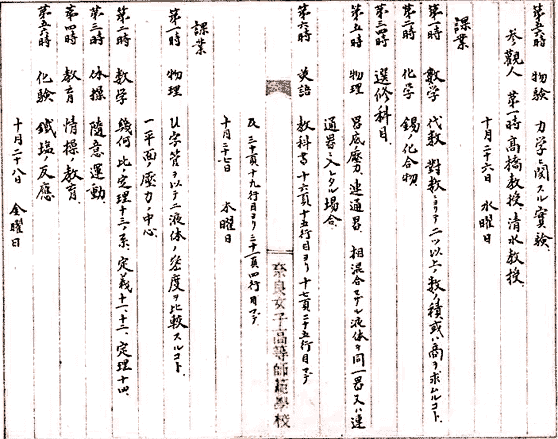 第五六時 物験 力学ニ関スル実験、
参観人 第一時 高橋教授、清水教授、
十月二十六日 水曜日
課業
第一時 数学 代数、対数ニヨリテ二ツ以上ノ数ノ積或ハ商ヲ求ムルコト、
第二時 化学 錫ノ化合物
第三四時 選修科目
第五時 物理 器底ノ圧力、連通器、相混合セザル液体ヲ同一器又ハ連
通器ニ入レタル場合、
第六時 英語 教科書、十六頁十五行目ヨリ十七頁二十五行目マデ
及 三十頁十九行目ヨリ三十一頁四行目マデ、
十月二十七日 木曜日
奈良女子高等師範學校
課業
第一時 物理 U字管ヲ以テ二液体ノ密度ヲ比較スルコト、
一平面ノ圧力ノ中心
第二時 数学 幾何、比ノ定理十三ノ系、定義十一、十二、定理十四、
第三時 体操 随意運動、
第四時 教育 情操ノ教育、
第五六時 化験 鐵塩ノ反應
十月二十八日 金曜日